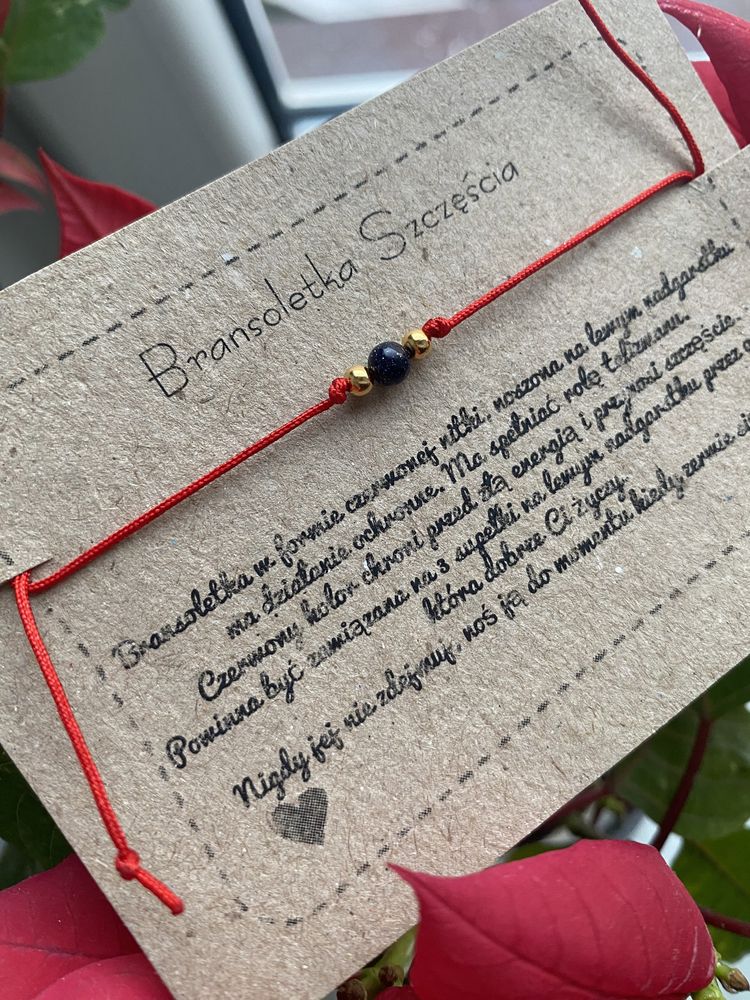 Bransoletka Szczęścia
Bransoletka w formie czerwonej nitki, noszona na lewym nadgarstku
ma działanie ochronne. Ma spełniać rolę talizmanu.
Czerwony kolor chroni przed złą energią i przynosi szczęście.
Powinna być zawiązana na 3 supełki na lewym nadgarstku przez
która dobrze Ci życzy.
Nigdy jej nie zdejmuj, noś ją do momentu kiedy zerwie się